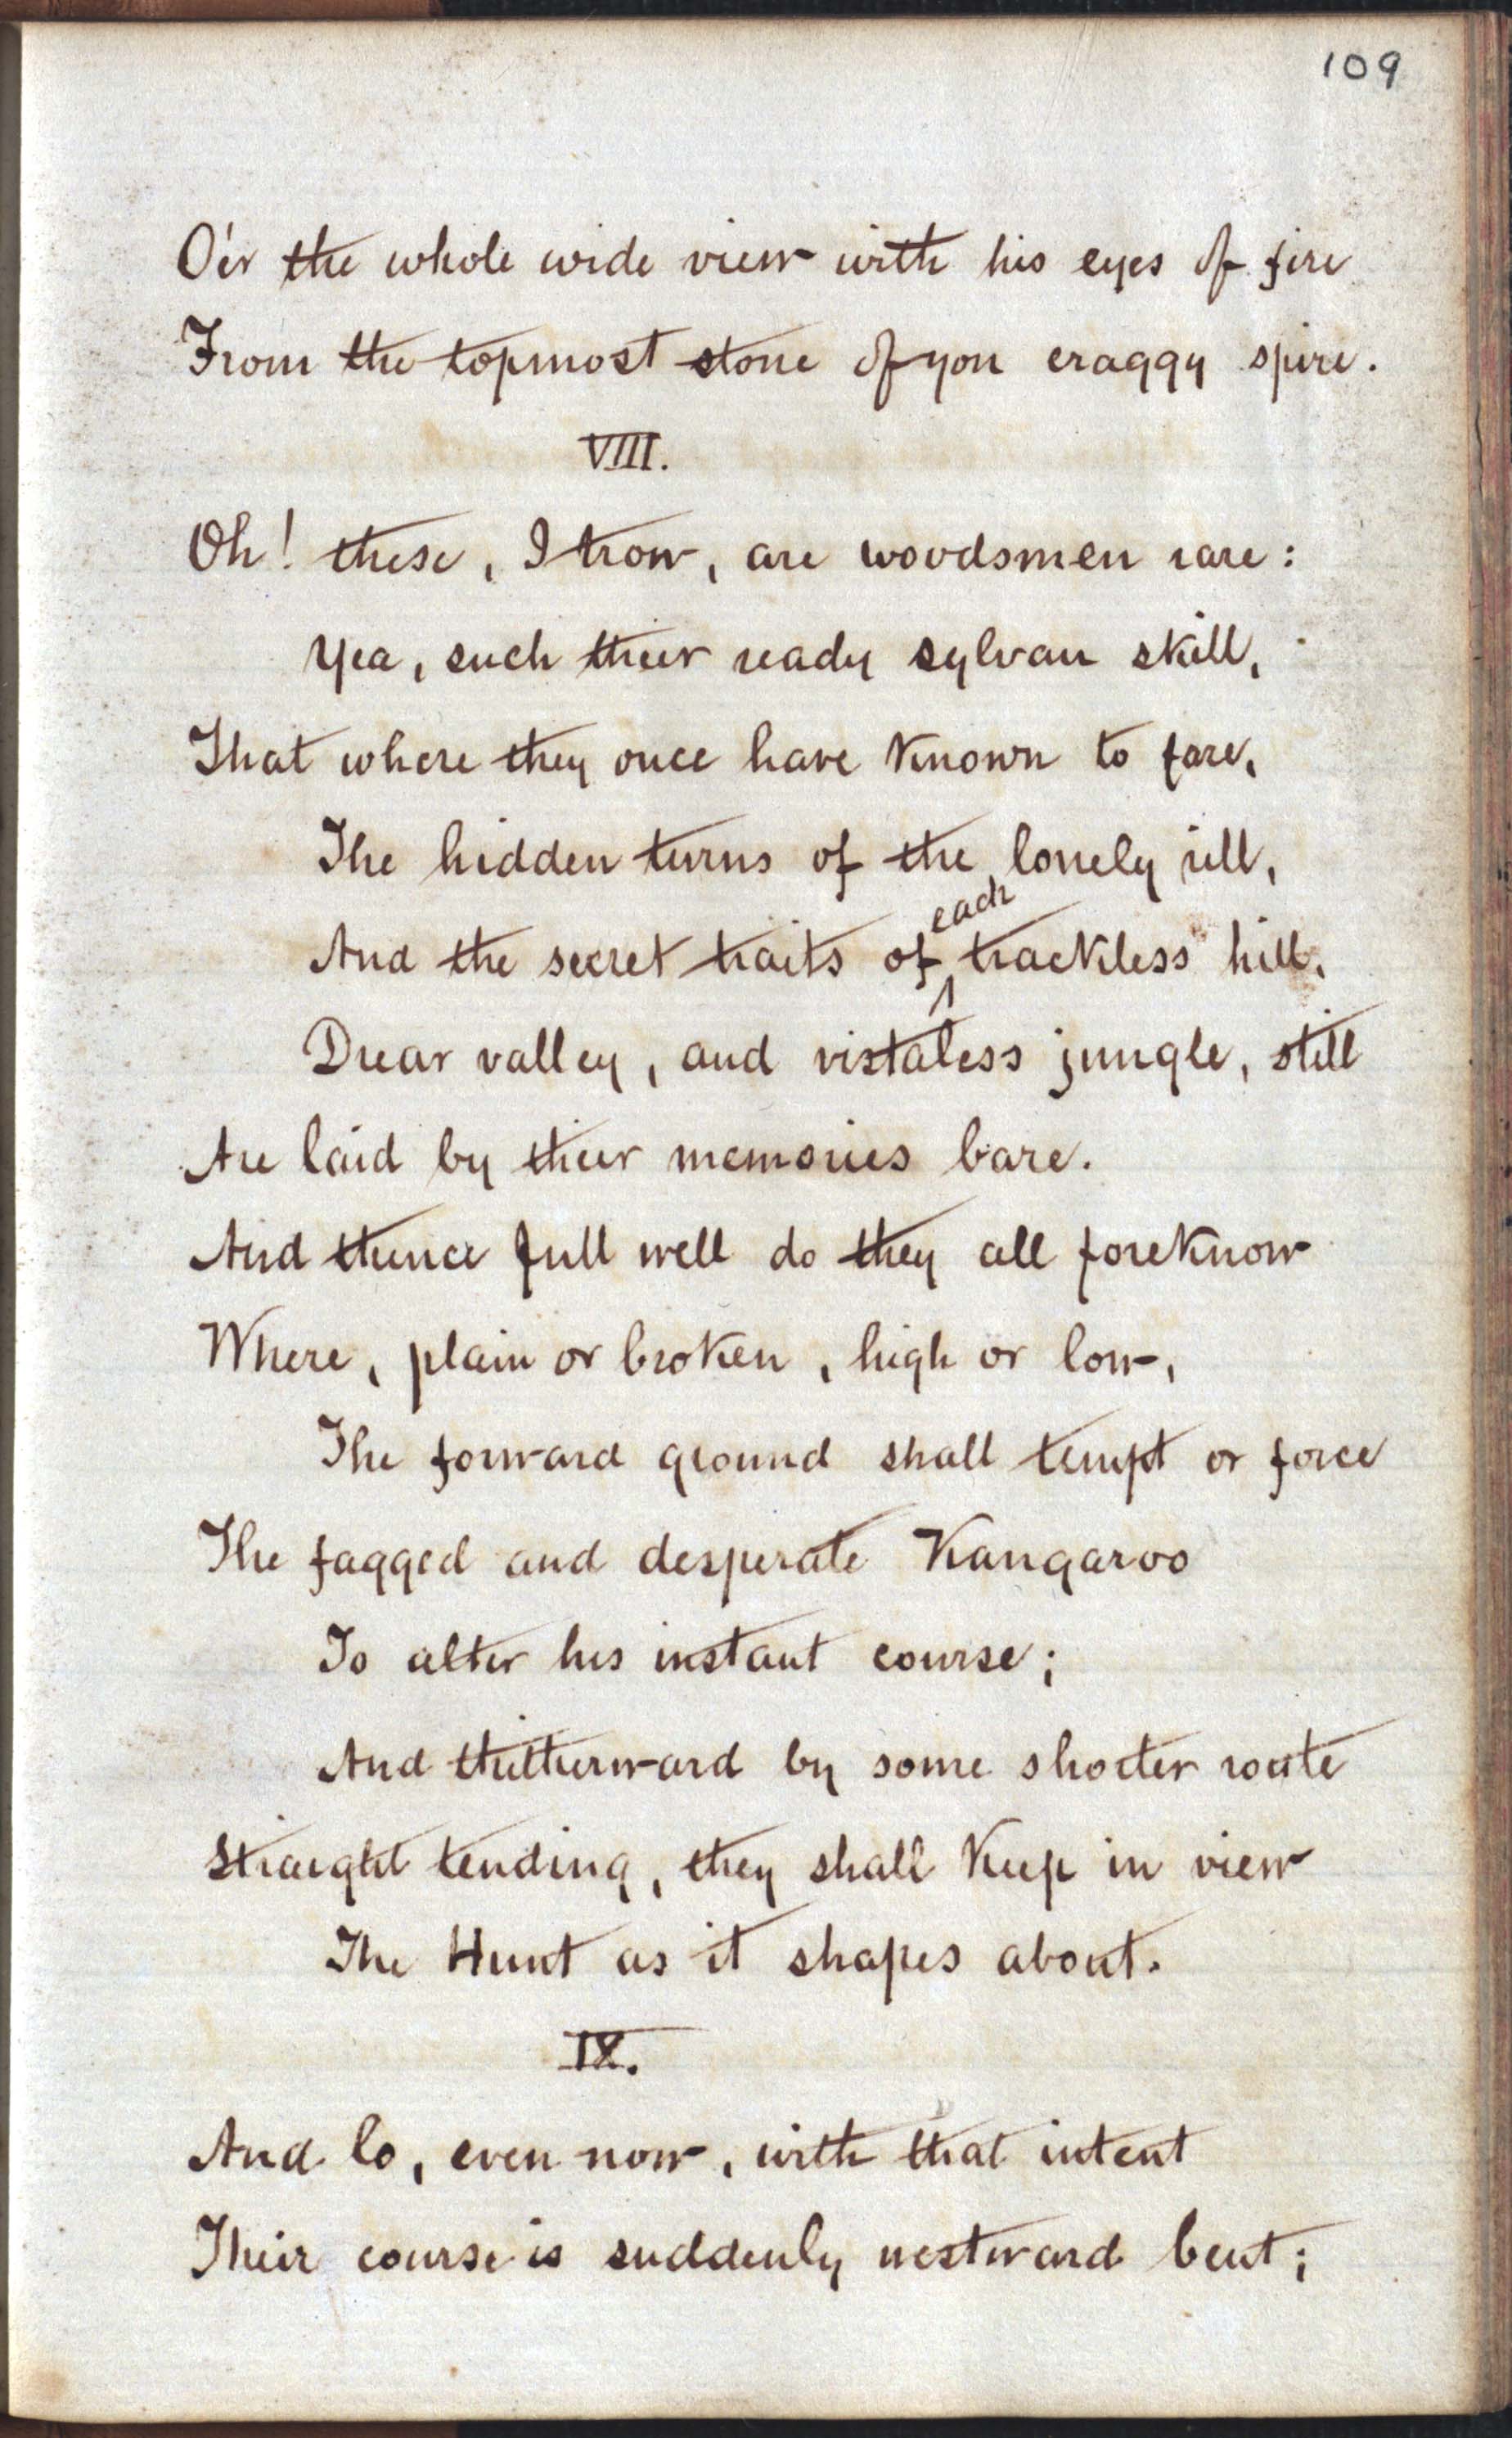 109
O'er the whole wide view with his eyes of fire
From the topmost stone of yon craggy spire.
VIII.
Oh! these, I trow, are woodsmen rare:
Yea, such their ready sylvan skill,
That where they once have known to fare,
The hidden turns of the lonely rill,
And the secret traits of each trackless hill,
Drear valley, and vistaless jungle, still
Are laid by their memories bare.
And thence full well do they all foreknow
Where, plain or broken, high or low,
The forward ground shall tempt or force
The fagged and desperate Kangaroo
To alter his instant course;
And thitherward by some shorter route
Straight tending, they shall keep in view
The Hunt as it shapes about.
IX.
And lo, even now, with that intent
Their course is suddenly westward bent;